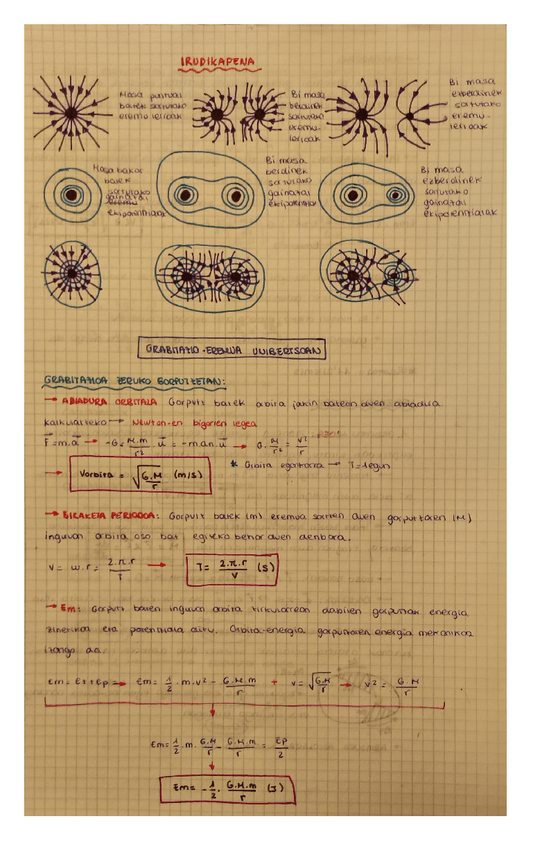 IRUDIKAPENA
Masa puntual
batek sortutako
eremu lerroak
Bi masa
berdinek
sortutako
eremu-
lerroak
Bi masa
ezberdinek
sortutako
eremu-
lerroak
Masa bakar
batek
sortutako
gainazal
ekipotentzialak
Bi masa
berdinek
sortutako
gainazal
ekipotentzialak
Bi masa
ezberdinek
sortutako
gainazal
ekipotentzialak
GRABITAZIO-EREMUA UNIBERTSOAN
GRABITAZIOA ZERUKO GORPUTZETAN:
→ ABIADURA ORBITALA: Gorputz batek orbita jakin batean duen abiadura
kalkulatzeko → Newton-en bigarren legea
F = m.a → -G = M.m/r² . u = -m.an.u → G. M/r² = v²/r
→ Vorbita = √(G.M/r) (m/s)
* Orbita egonkorra → T=1egun
→ BIRAKETA PERIODOA: Gorputz batek (m) eremua sortzen duen gorputzaren (M)
inguruan orbita oso bat egiteko behar duen denbora.
v = w.r = 2.π.r/T → T = 2.π.r/v (s)
→ Em: Gorputz baten inguruan orbita zirkularrean dabilen gorputzak energia
zinetikoa eta potentziala ditu. Orbita-energia gorputzaren energia mekanikoa
izango da.
Em = Ez+Ep → Em = 1/2 . m.v² - G.M.m/r + v = √(G.M/r) → v² = G.M/r
Em = 1/2 . m. G.M/r - G.M.m/r = Ep/2
Em = - 1/2 . G.M.m/r (J)